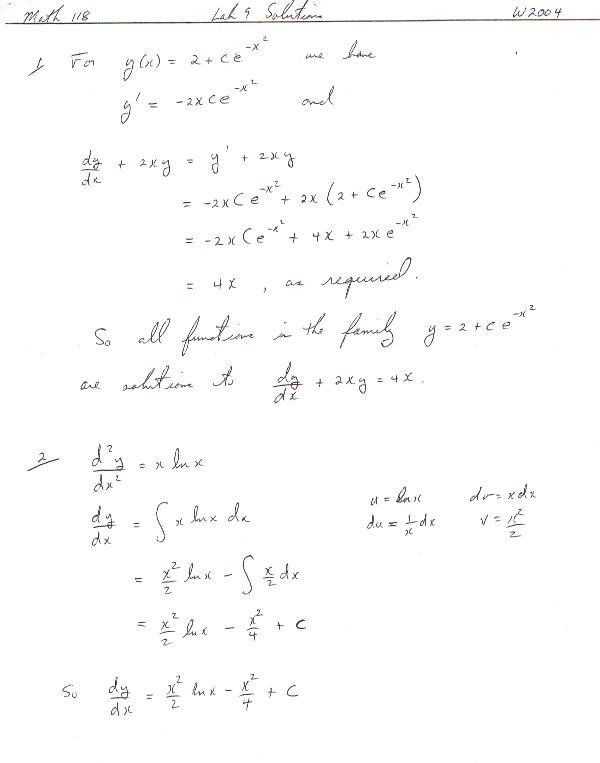 Math 118 Lab 9 Solutions W2004
1 For y(x) = 2 + Ce^{-x^2} we have
y' = -2xCe^{-x^2} and
dy/dx + 2xy = y' + 2xy
= -2xCe^{-x^2} + 2x(2 + Ce^{-x^2})
= -2xCe^{-x^2} + 4x + 2xe^{-x^2}
= 4x, as required.
So all functions in the family y = 2 + Ce^{-x^2}
are solutions to dy/dx + 2xy = 4x.
2 d^2y/dx^2 = x ln x
u = ln x dv = x dx
dy/dx = ∫ x ln x dx du = 1/x dx v = x^2/2
= x^2/2 ln x - ∫ x/2 dx
= x^2/2 ln x - x^2/4 + C
So dy/dx = x^2/2 ln x - x^2/4 + C